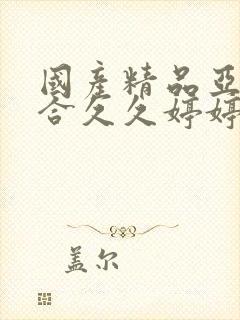 國產精品亞
合久久婷婷
盖尔